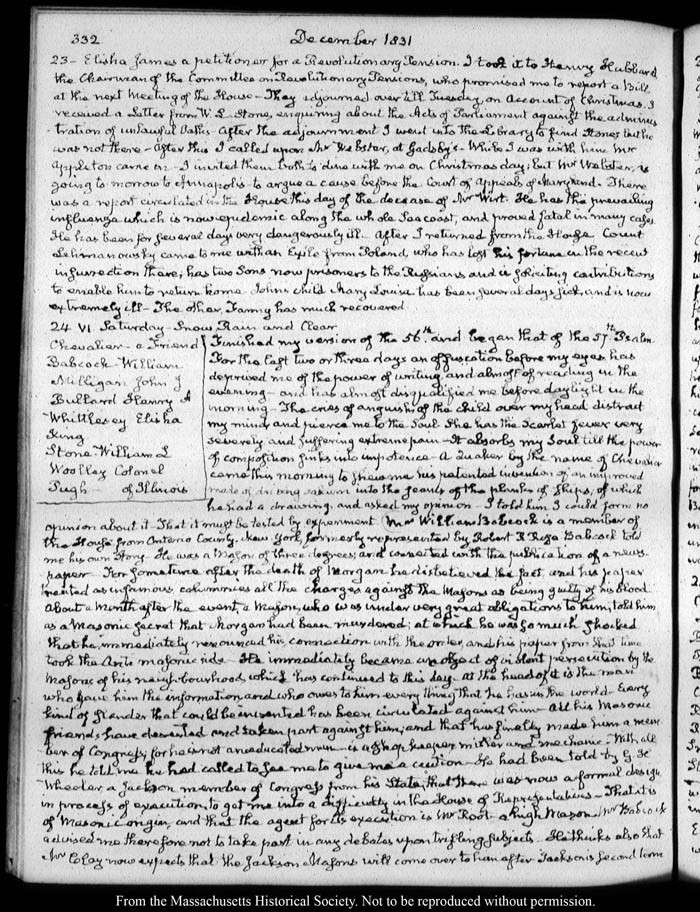 332 December 1831
23 - Elisha James a petitioner for a Revolutionary Pension. I took it to Henry Hubbard
the Chairman of the Committee on Revolutionary Pensions, who promised me to report a Bill
at the next Meeting of the House - They adjourned over till Tuesday, on Account of Christmas. I
received a Letter from W. L. Stone, enquiring about the Acts of Parliament against the adminis
tration of unlawful Oaths - After the adjournment I went into the Library to find Stones but he
was not there - After this I called upon Mr Webster, at Gadsby's - While I was with him Mr
Appleton came in - I invited them both to dine with me on Christmas day; but Mr Webster, is
going to morrow to Annapolis to argue a cause before the Court of Appeals of Maryland - There
was a report circulated in the House this day of the decease of Mr Wirt. He has the prevailing
influenza which is now epidemic along the whole Seacoast, and proved fatal in many cases.
He has been for several days very dangerously ill. After I returned from the House Count
Lehmanousky came to me with an Exile from Poland, who has lost his fortune in the recent
insurrection there, has two Sons now prisoners to the Russians, and is soliciting contributions
to enable him to return home - John's child Mary Louisa has been several days sick, and is now
extremely ill - The other, Fanny has much recovered
24 VI. Saturday - Snow, Rain and Clear
Chevalier - a Friend
Babcock William
Milligan John J
Bullard Henry A
Whittlesey Elisha
King
Stone William L
Woolley Colonel
Pugh of Illinois
Finished my version of the 56th and began that of the 57th Psalm.
For the last two or three days an offuscation before my eyes has
deprived me of the power of writing and almost of reading in the
evening - and has almost disqualified me before daylight in the
morning - The cries of anguish of the child over my head distract
my mind and pierce me to the Soul She has the Scarlet fever very
severely and suffering extreme pain - It absorbs my Soul till the power
of composition sinks into impotence - A Quaker by the name of Chevalier
came this morning to shew me his patented invention of an improved
made of driving oakum into the seams of the planks of Ships, of which
he had a drawing, and asked my opinion - I told him I could form no
opinion about it - That it must be tested by experiment. Mr William Babcock is a member of
the House from Ontario County, New York, formerly represented by Robert S. Rose Babcock told
me his own Story - He was a Mason of three degrees; and connected with the publication of a news-
paper - For sometime after the death of Morgan he disbelieved the fact, and his paper
treated as infamous, calumnies all the charges against the Masons as being guilty of his blood
About a Month after the event, a Mason, who was under very great obligations to him, told him
as a Masonic secret that Morgan had been murdered; at which he was so much shocked
that he immediately renounced his connection with the order, and his paper from that time
took the Anti masonic side - He immediately became an object of violent persecution by the
Masons of his neighbourhood which has continued to this day - At the head of it is the man
who gave him the information and who owes to him every thing that he has in the world - Every
kind of slander that could be invented has been circulated against him - All his Masonic
friends have deserted and taken part against him; and that has finally made him a mem
ber of Congress; for he is not an educated man - is a shop keeper, miller and mechanic - With all
this he told me he had called to see me to give me a caution - He had been told by G H
Wheeler a Jackson member of Congress from his State, that there was now a formal design
in process of execution, to get me into a difficulty in the House of Representatives - That it is
of Masonic origin, and that the agent for its execution is Mr Root - a high Mason - Mr Babcock
advised me therefore not to take part in any debates upon trifling subjects - He thinks also that
Mr Clay now expects that the Jackson Masons will come over to him after Jackson's second term
From the Massachusetts Historical Society. Not to be reproduced without permission.